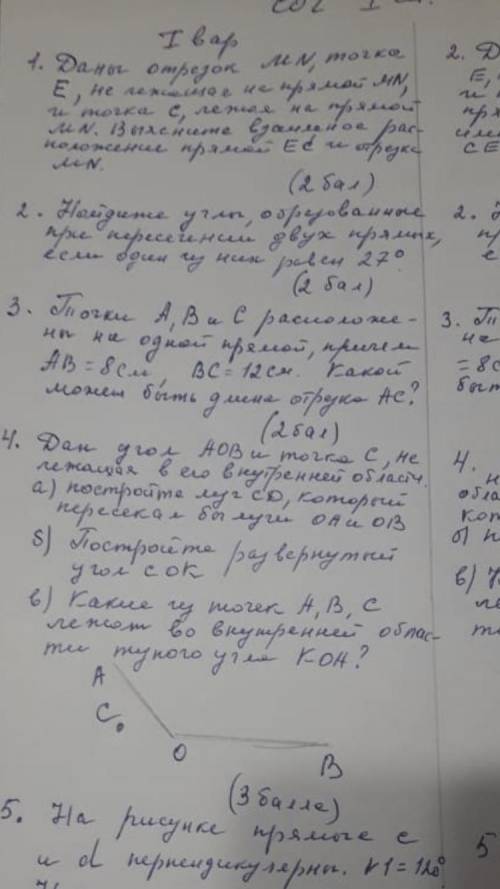 I вар
1. Даны отрезок MN, точка
E, не лежащая на прямой MN,
и точка C, лежая на прямой
MN. Выясните взаимное рас-
положение прямой EC и отрезка
MN.
(2 бал)
2. Найдите углы, образованные
при пересечении двух прямых,
если один из них равен 27°
(2 бал)
3. Точки A, B и C расположе-
ны на одной прямой, причем
AB = 8см, BC = 12см. Какой
может быть длина отрезка AC?
(2 бал)
4. Дан угол AOB и точка C, не
лежащая в его внутренней област.
а) постройте луч CD, который
пересекал бы лучи OA и OB
б) Постройте развернутый
угол COK
в) Какие из точек A, B, C
лежат во внутренней облас-
ти тупого угла KOA?
A
C
O
B
(3 балле)
5. На рисунке прямые c
и d перпендикулярны. ∠1 = 120°
2.
E,
CE
2.
3. Т
на
= 8с
быт
4.
обла
в)
5